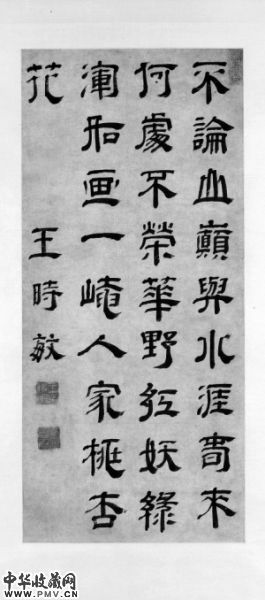 不論山巔與水涯春来
何處不榮華野紅妖緑
渾如画一崦人家桃杏
花 王時敏
中华收藏网
WWW.PMV.CN